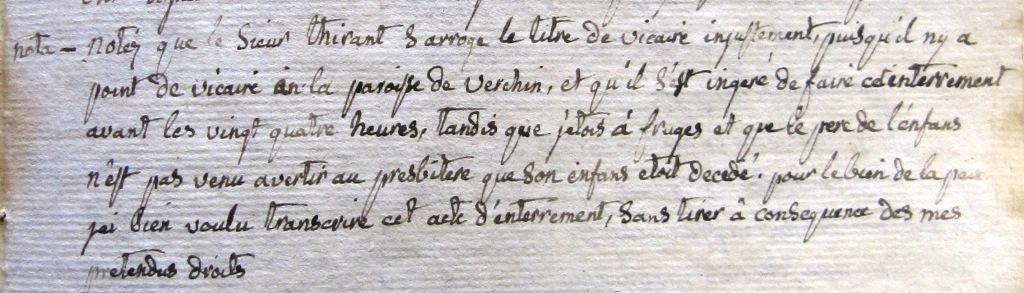 nota – notéz que le Sieur thirant S arroge le titre de vicaire injustement, puisqu'il ny a
point de vicaire en la paroisse de verchin, et qu'il s'est ingeré de faire cet enterrement
avant les vingt quatre heures, tandis que j'etois á fruges et que le pere de l'enfans
n'est pas venu avertir au presbitere que son enfans etoit decedé. pour le bien de la paix
jai bien voulu transcrire cet acte d'enterrement, sans tirer â consequence des mes
pretendus droits